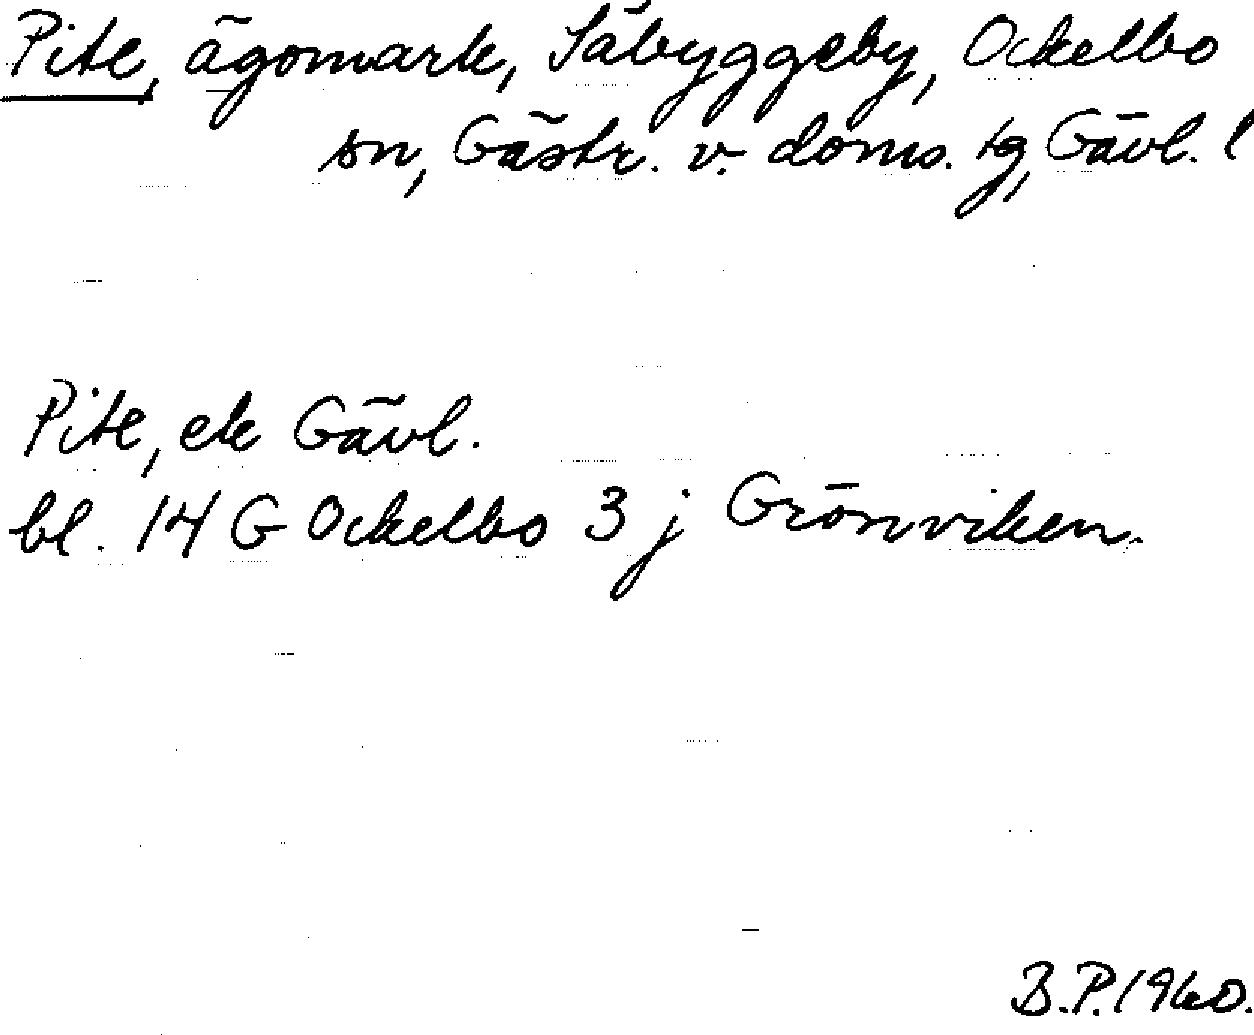 Pite, ägomark, Säbyggeby, Ockelbo
sn, Gästr. v. doms. tg, Gävl. l
Pite, ek Gävl.
bl. 14 G Ockelbo 3 j Grönviken.
B.P. 1960.